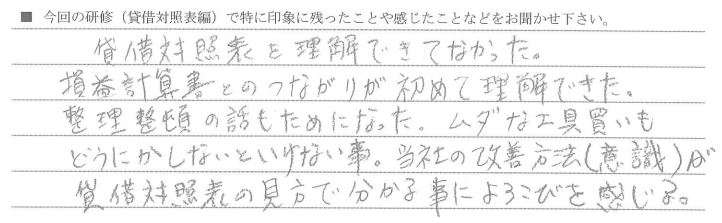 ■ 今回の研修（貸借対照表編）で特に印象に残ったことや感じたことなどをお聞かせ下さい。
貸借対照表を理解できてなかった。
損益計算書とのつながりが初めて理解できた。
整理整頓の話もためになった。ムダな工具買いも
どうにかしないといけない事。当社の改善方法(意識)が
貸借対照表の見方で分かる事によろこびを感じる。